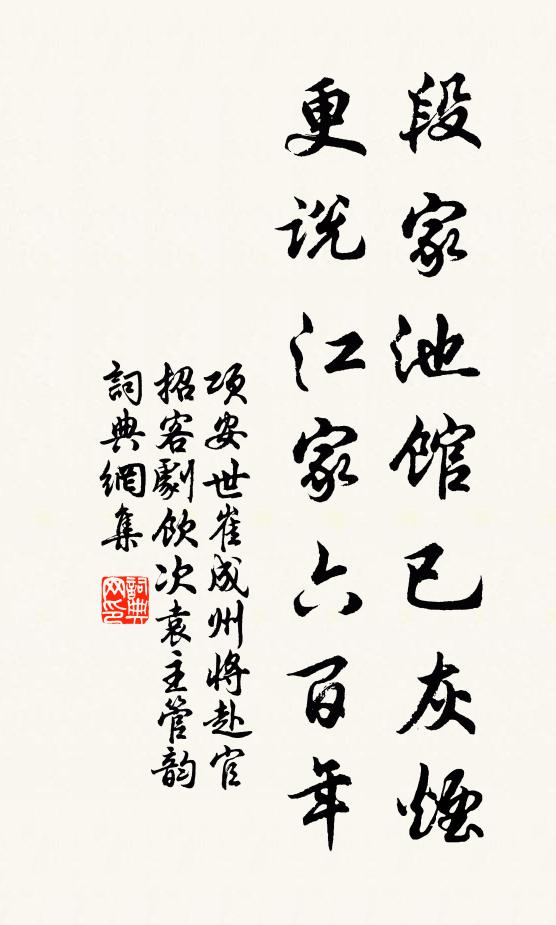 段家池馆已灰煙
更说江家六百年
项安世崔成州將赴官
招客劇飲次袁主管韵
詞典網集
詞典
网印